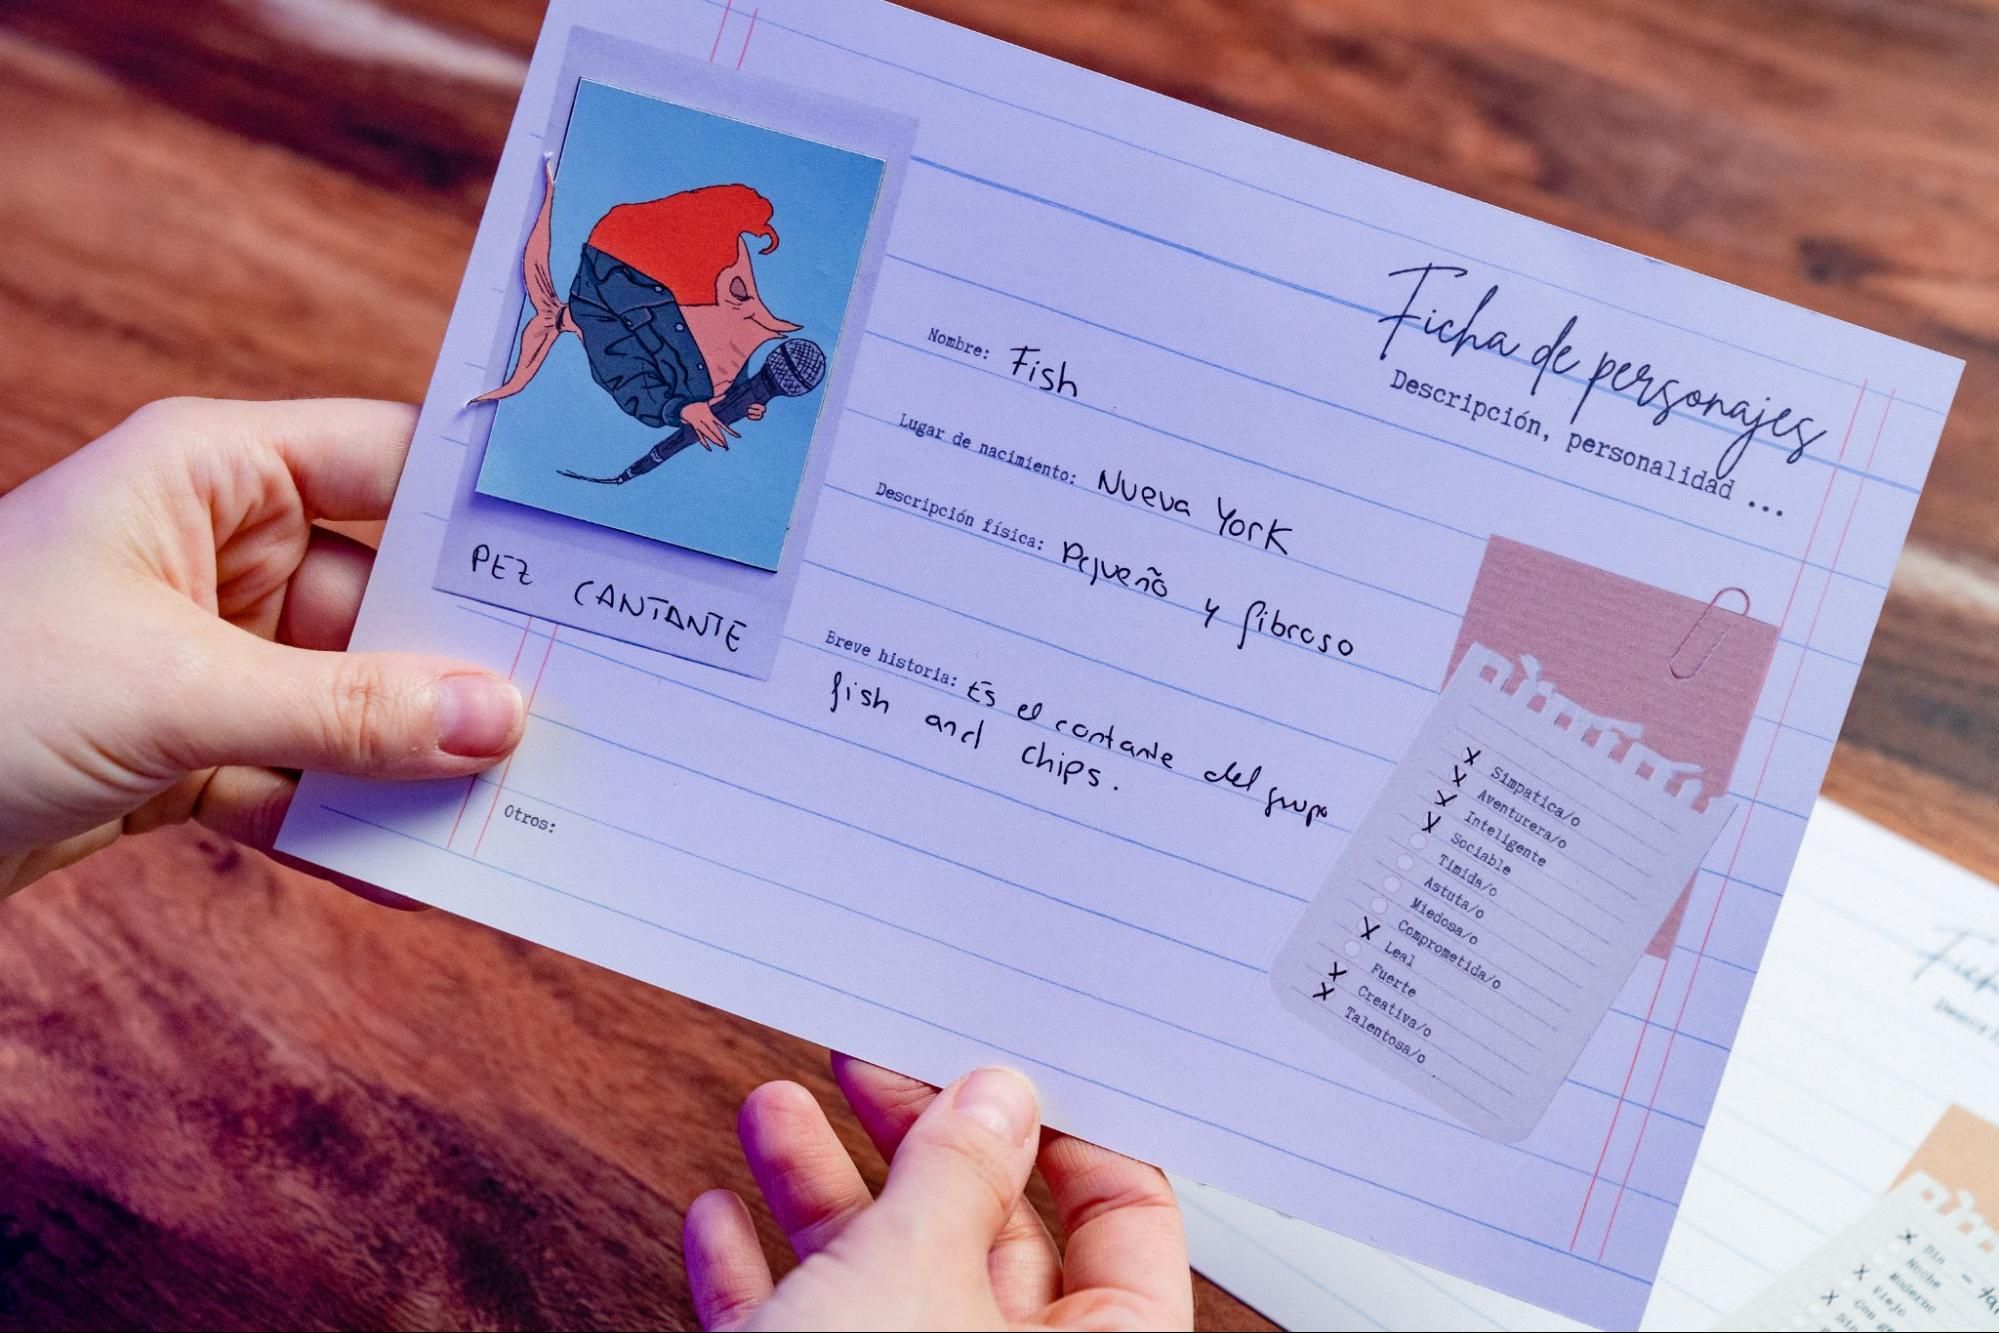 Ficha de personajes
Descripción, personalidad ...
Nombre: Fish
Lugar de nacimiento: Nueva York
Descripción física: Pequeño y fibroso
Breve historia: Es el cantante del grupo
fish and chips.
Otros:
PEZ CANTANTE
X Simpatica/o
X Aventurera/o
X Inteligente
X Sociable
Timida/o
Astuta/o
Miedosa/o
Comprometida/o
X Leal
Fuerte
X Creativa/o
X Talentosa/o
X Día
Noche
Moderno
X Viejo
X